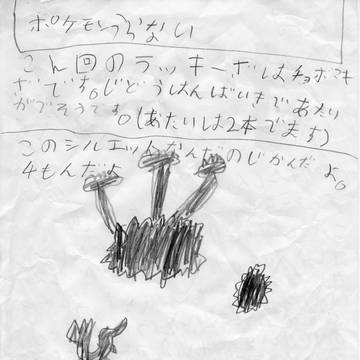 ポケモンうらない
こん回のラッキーポケはチョボマキ
です。じどうはんばいきであたり
がでそうです。(あたいは2本でます)
このシルエットなんだのじかんだよ。
4もんだよ